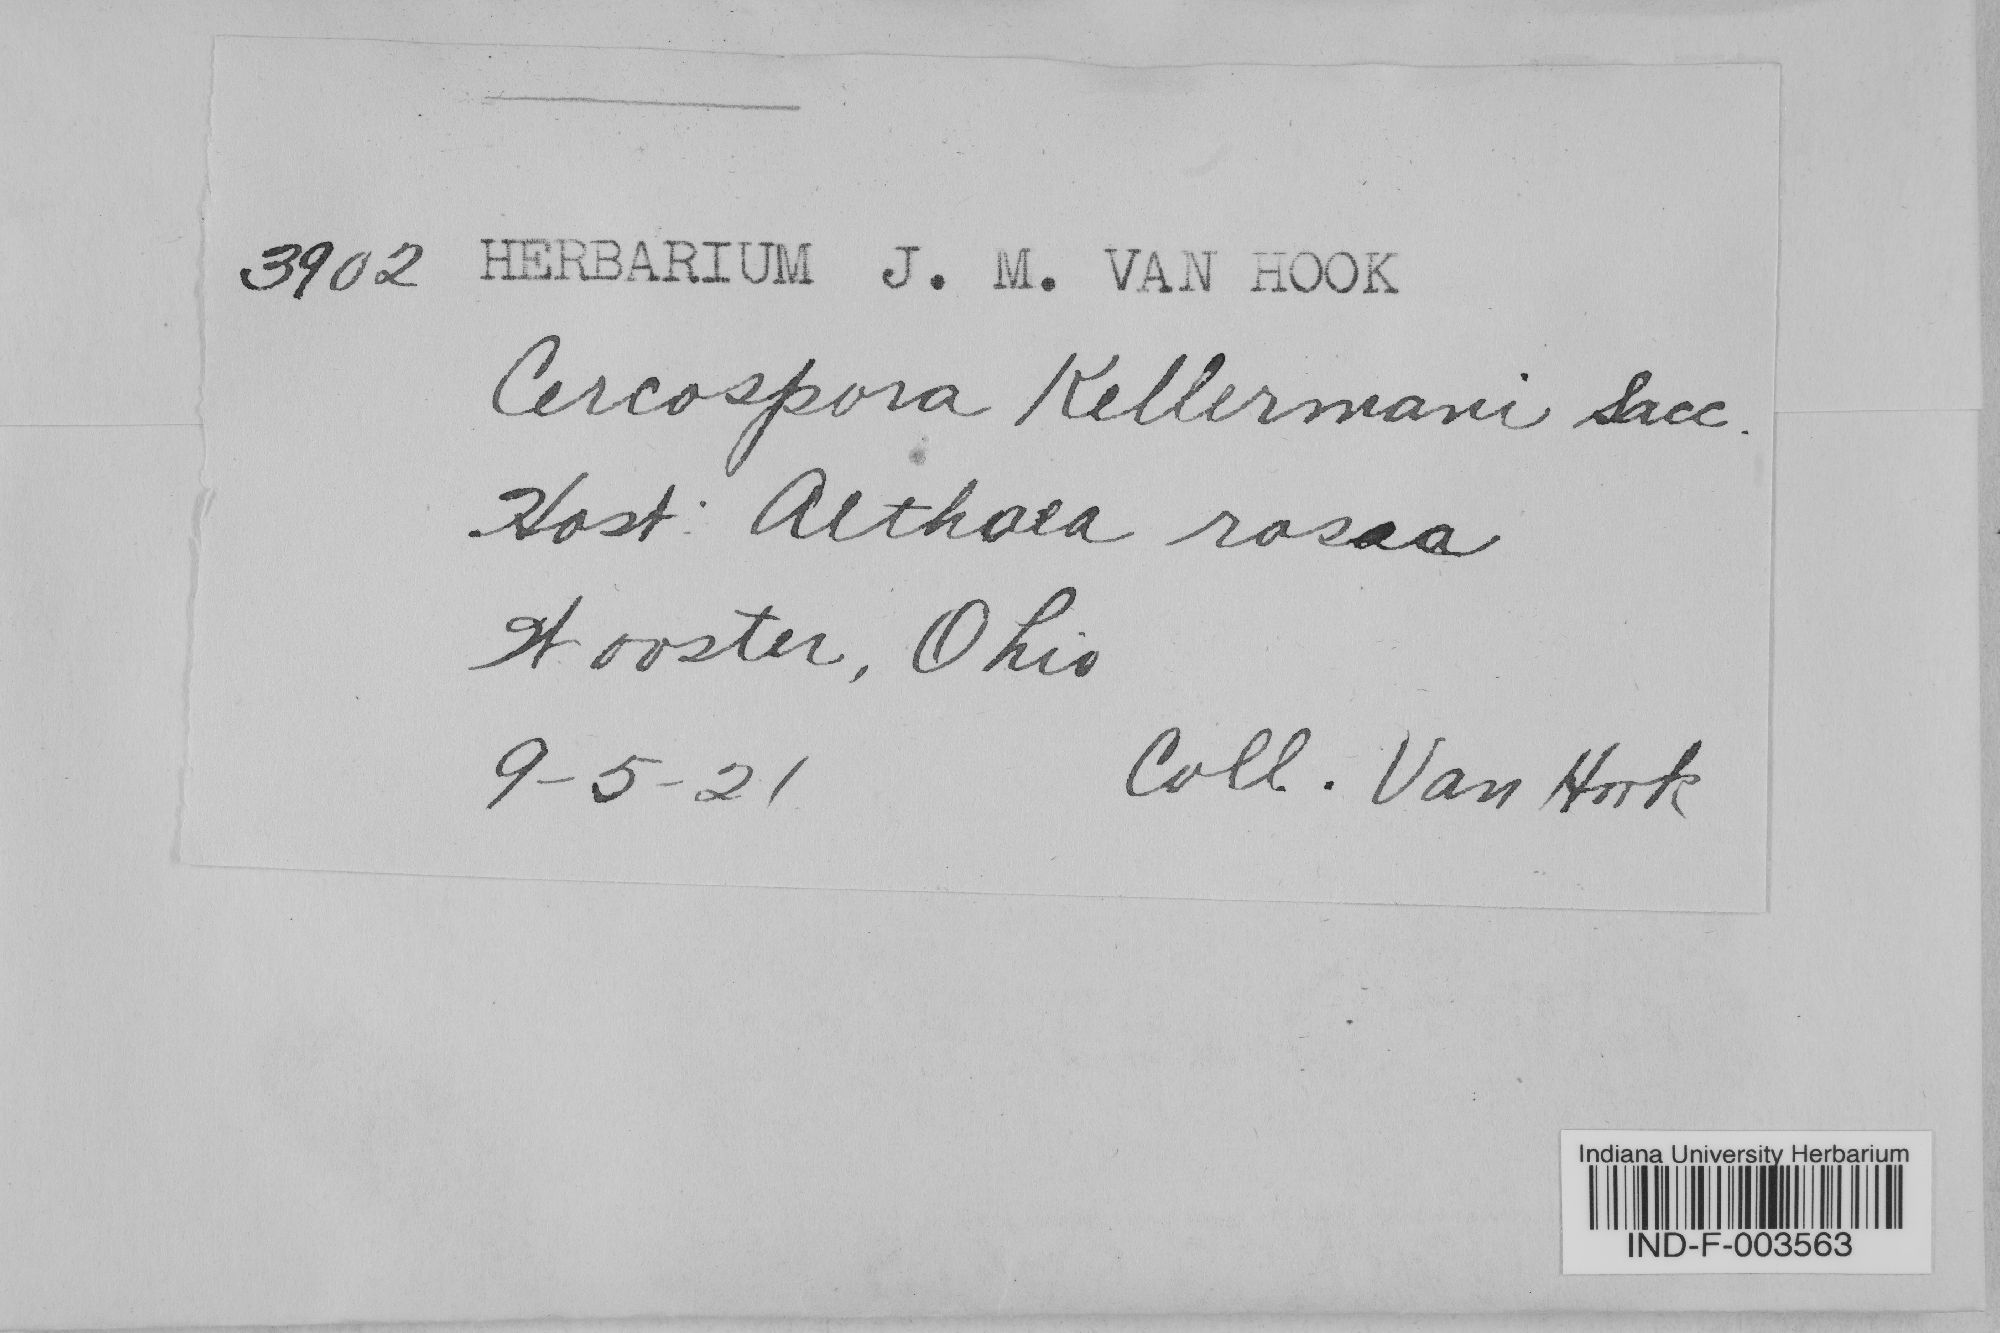 3902 HERBARIUM J. M. VAN HOOK
Cercospora Kellermani Sacc.
Host: Althaea rosaa
Wooster, Ohio
9-5-21 Coll. Van Hook
Indiana University Herbarium
IND-F-003563